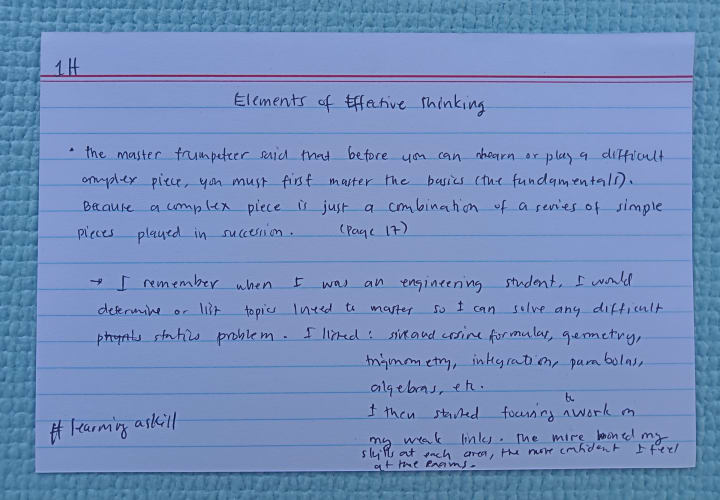 1H
Elements of Effective Thinking
• the master trumpeter said that before you can or play a difficult
complex piece, you must first master the basics (the fundamentals).
Because a complex piece is just a combination of a series of simple
pieces played in succession. (Page 17)
→ I remember when I was an engineering student, I would
determine or list topic I need to master so I can solve any difficult
statics problem. I listed: sine and cosine formulas, geometry,
trigonometry, integration, parabolas,
algebras, etc.
I then started focusing to work on
my weak links. The more honed my
skills at each area, the more confident I feel
at the exams.
# learning a skill